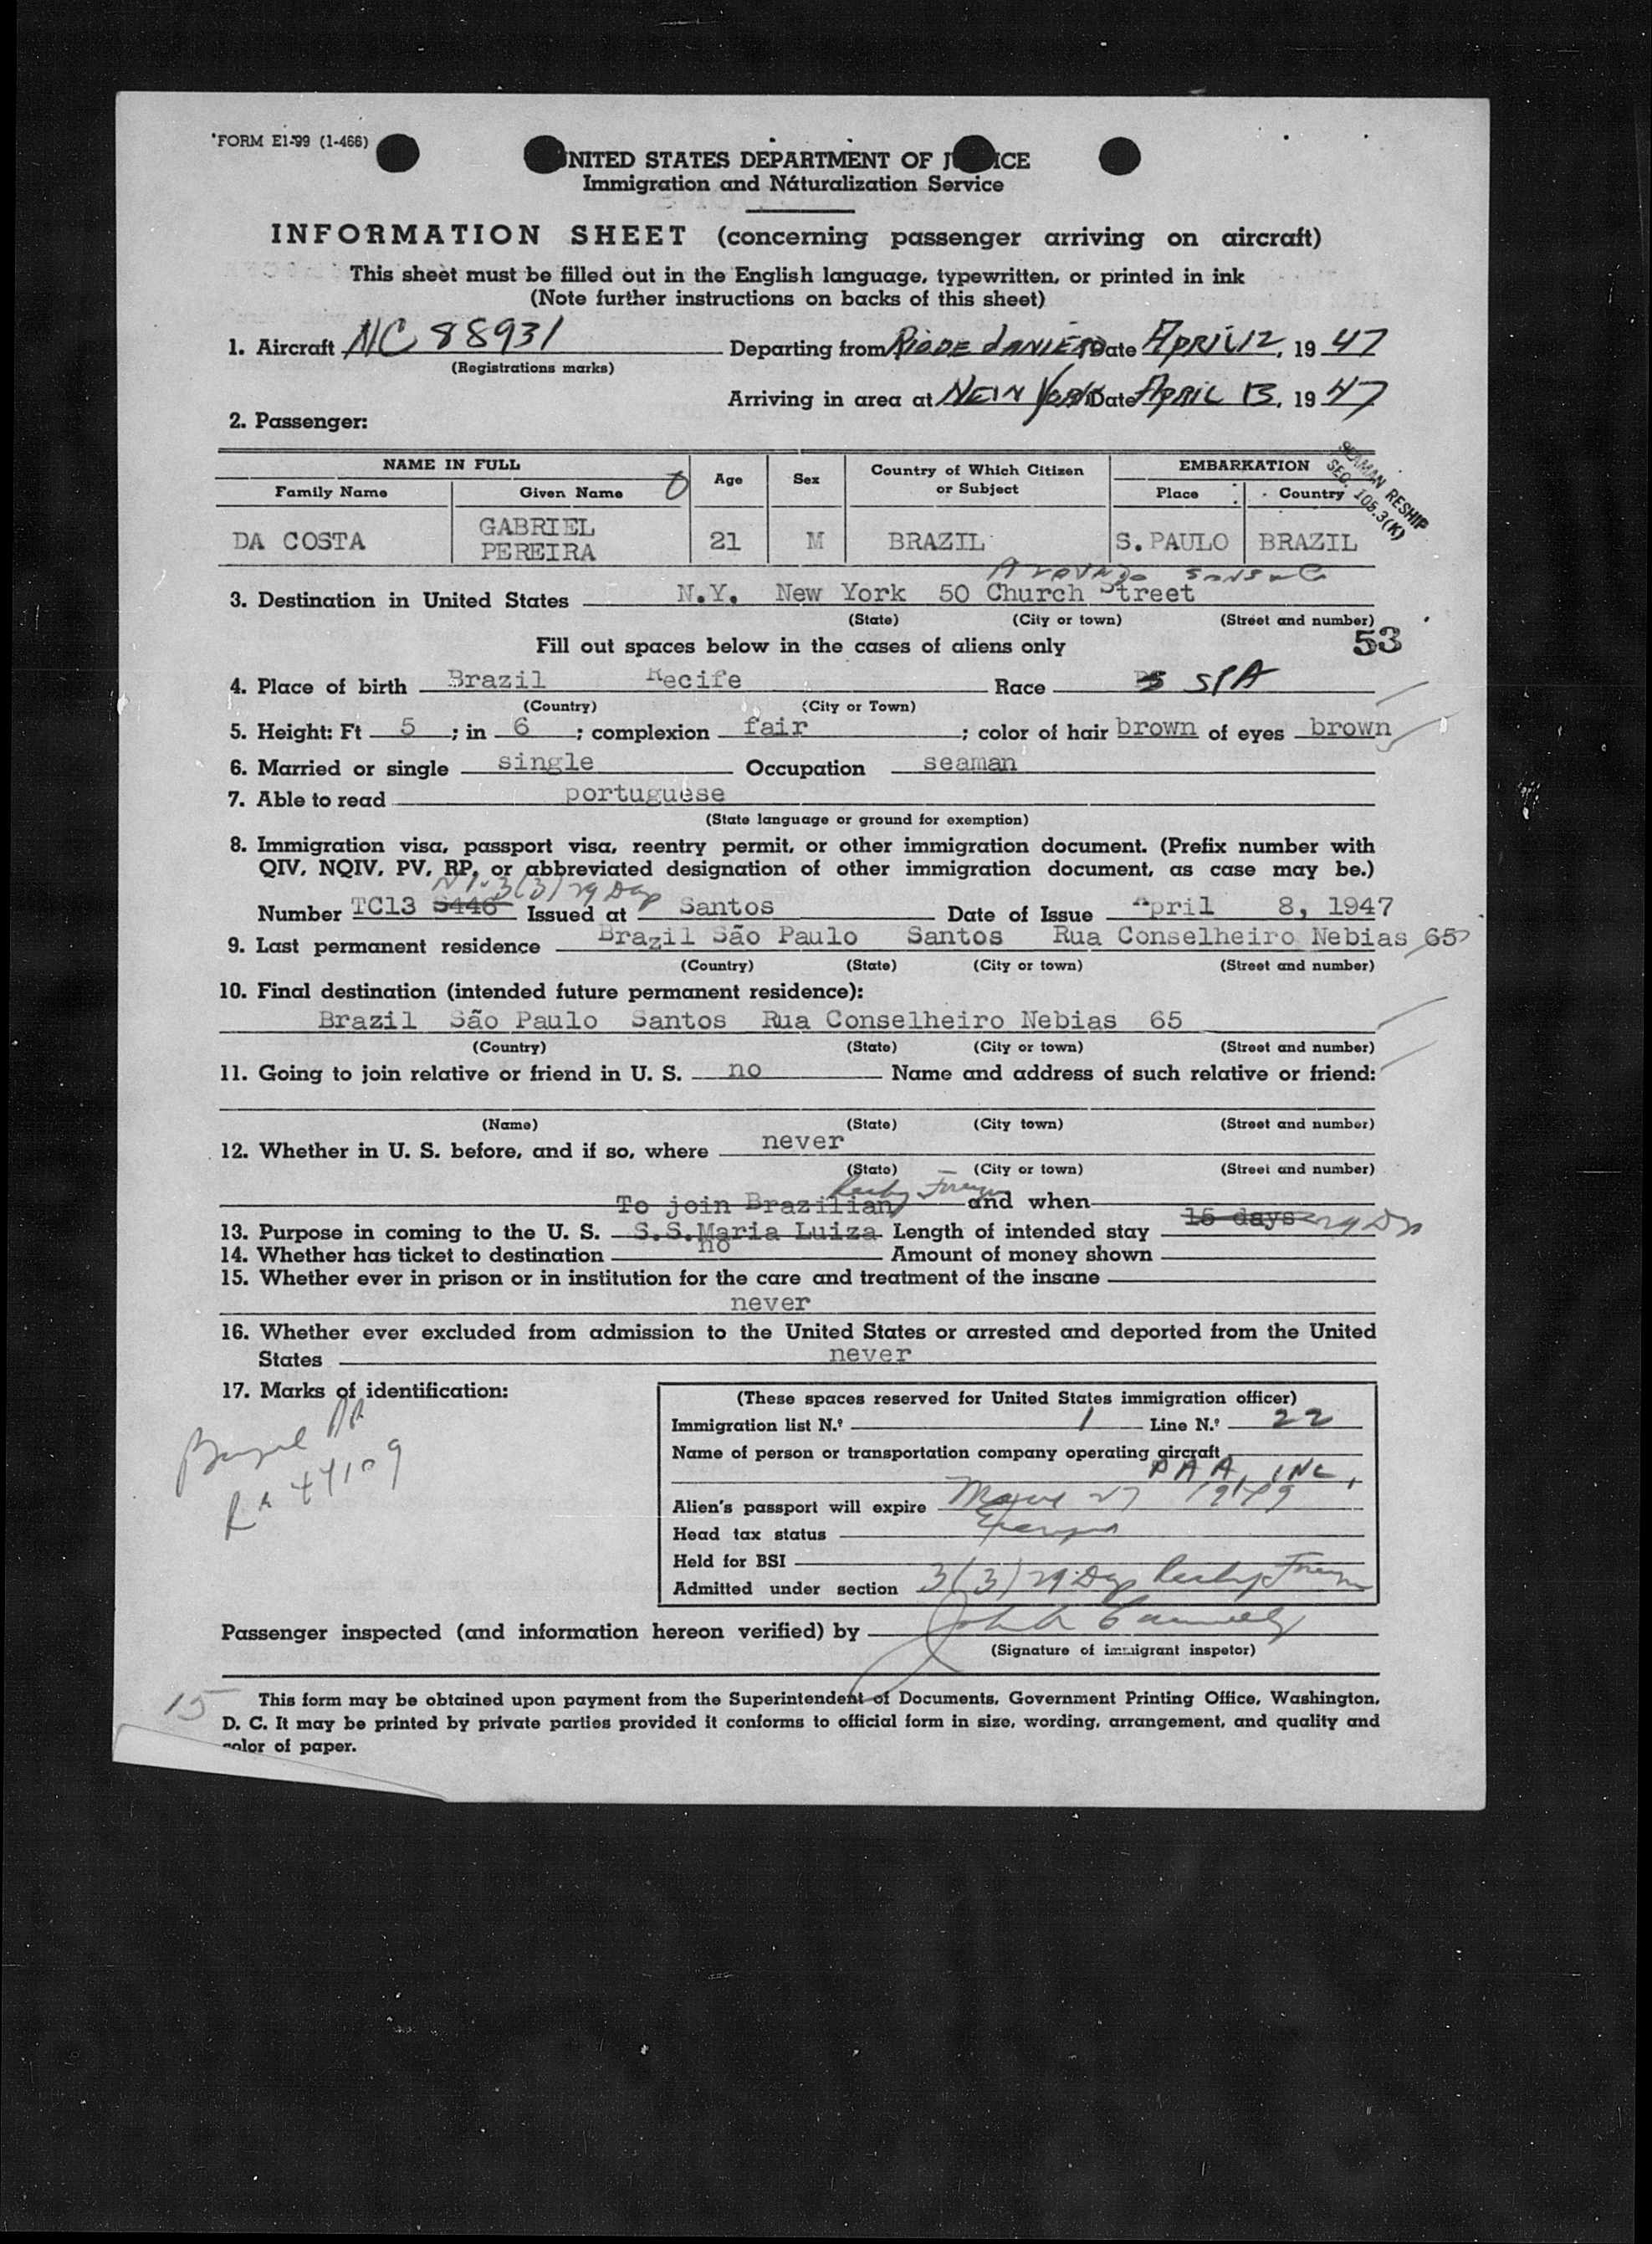 FORM E1-99 (1-466)
UNITED STATES DEPARTMENT OF J ICE
Immigration and Naturalization Service
INFORMATION SHEET (concerning passenger arriving on aircraft)
This sheet must be filled out in the English language, typewritten, or printed in ink
(Note further instructions on backs of this sheet)
1. Aircraft NC 88931 Departing from RIO DE JANIERO Date APRIL 12, 19 47
(Registrations marks)
Arriving in area at NEW YORK Date APRIL 13, 19 47
2. Passenger:
NAME IN FULL Age Sex Country of Which Citizen or Subject EMBARKATION
Family Name Given Name Place Country
SEAMAN RESHIP
SEC. 105.3(K)
DA COSTA GABRIEL PEREIRA 21 M BRAZIL S.PAULO BRAZIL
3. Destination in United States N.Y. New York 50 Church Street
(State) (City or town) (Street and number)
Fill out spaces below in the cases of aliens only 53
4. Place of birth Brazil Recife Race SPA
(Country) (City or Town)
5. Height: Ft 5 ; in 6 ; complexion fair ; color of hair brown of eyes brown
6. Married or single single Occupation seaman
7. Able to read portuguese
(State language or ground for exemption)
8. Immigration visa, passport visa, reentry permit, or other immigration document. (Prefix number with
QIV, NQIV, PV, RP, or abbreviated designation of other immigration document, as case may be.)
3(3) 29 Days
Number TC13 5446 Issued at Santos Date of Issue April 8, 1947
9. Last permanent residence Brazil São Paulo Santos Rua Conselheiro Nebias 65
(Country) (State) (City or town) (Street and number)
10. Final destination (intended future permanent residence):
Brazil São Paulo Santos Rua Conselheiro Nebias 65
(Country) (State) (City or town) (Street and number)
11. Going to join relative or friend in U. S. no Name and address of such relative or friend:
(Name) (State) (City town) (Street and number)
12. Whether in U. S. before, and if so, where never
(State) (City or town) (Street and number)
To join Brazilian Reship Foreign and when
13. Purpose in coming to the U. S. S.S.Maria Luiza Length of intended stay 15 days 29 Dys
14. Whether has ticket to destination no Amount of money shown
15. Whether ever in prison or in institution for the care and treatment of the insane
never
16. Whether ever excluded from admission to the United States or arrested and deported from the United
States never
17. Marks of identification:
Brazil PP
RA 44109
(These spaces reserved for United States immigration officer)
Immigration list N.º 1 Line N.º 22
Name of person or transportation company operating aircraft
PAA, INC,
Alien's passport will expire 27 1949
Head tax status Exempt
Held for BSI
Admitted under section 3(3) 29 Dys Reship Foreign
Passenger inspected (and information hereon verified) by John
(Signature of immigrant inspetor)
15
This form may be obtained upon payment from the Superintendent of Documents, Government Printing Office, Washington,
D. C. It may be printed by private parties provided it conforms to official form in size, wording, arrangement, and quality and
color of paper.